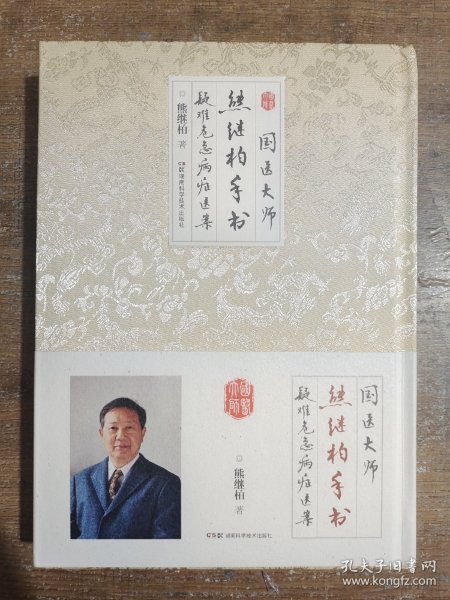 国医大师
熊继柏手书
疑难危急病症医案
熊继柏 著
湖南科学技术出版社
国医大师
国医大师
熊继柏手书
疑难危急病症医案
國醫大師
熊继柏 著
湖南科学技术出版社
孔夫子旧书网
www.kongfz.com